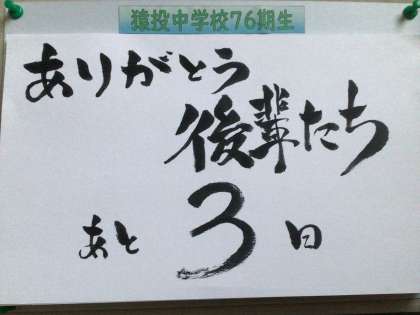 猿投中学校76期生
ありがとう
後輩たち
あと3日